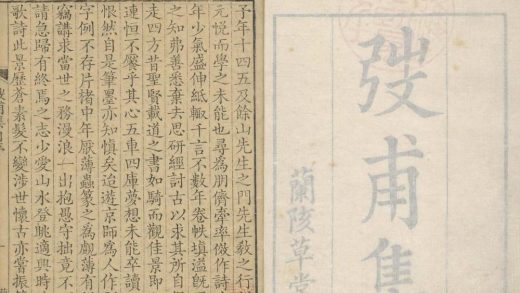 弢甫集
蘭陔草堂
予年十四五及餘山先生之門先生敎之行
元慌而學之未能也尋為朋儕牽率倣作詩
年少氣盛伸紙輒千言不數年卷帙塡溢旣
之知弗善悉棄去思研經討古以求其所自
走四方昔聖賢載道之書如騎而觀佳景即
連恒不饜乎其心五車四庫夢想未能讀
悵然自是筆墨亦知愼矣迨遊京師為人作
字例不存片楮中年厭薄蟲篆之為薄有
竊講求當世之務漫浪一出抱愚守拙竟不
請急歸有終焉之志少愛山水登眺適興時
歌詩此景歷蒼素髮不變涉世懷古亦嘗振